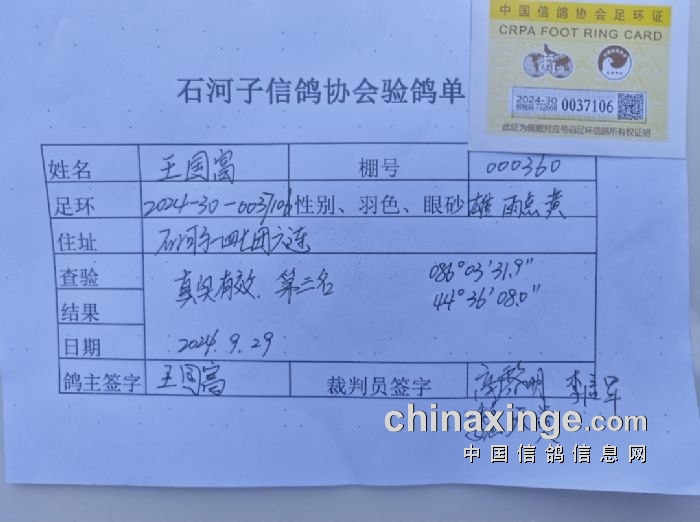 中国信鸽协会足环证
CRPA FOOT RING CARD
2024-30
校验码:722668
0037106
此证为佩戴对应号码足环信鸽所有权证明
石河子信鸽协会验鸽单
姓名 王国富 棚号 000360
足环 2024-30-0037106 性别、羽色、眼砂 雄 雨点 黄
住址 石河子一四七团六连
查验 真实有效 第三名 086°03'31.9"
结果 44°36'08.0"
日期 2024.9.29
鸽主签字 王国富 裁判员签字 高黎明
chinaxinge.com
中国信鸽信息网